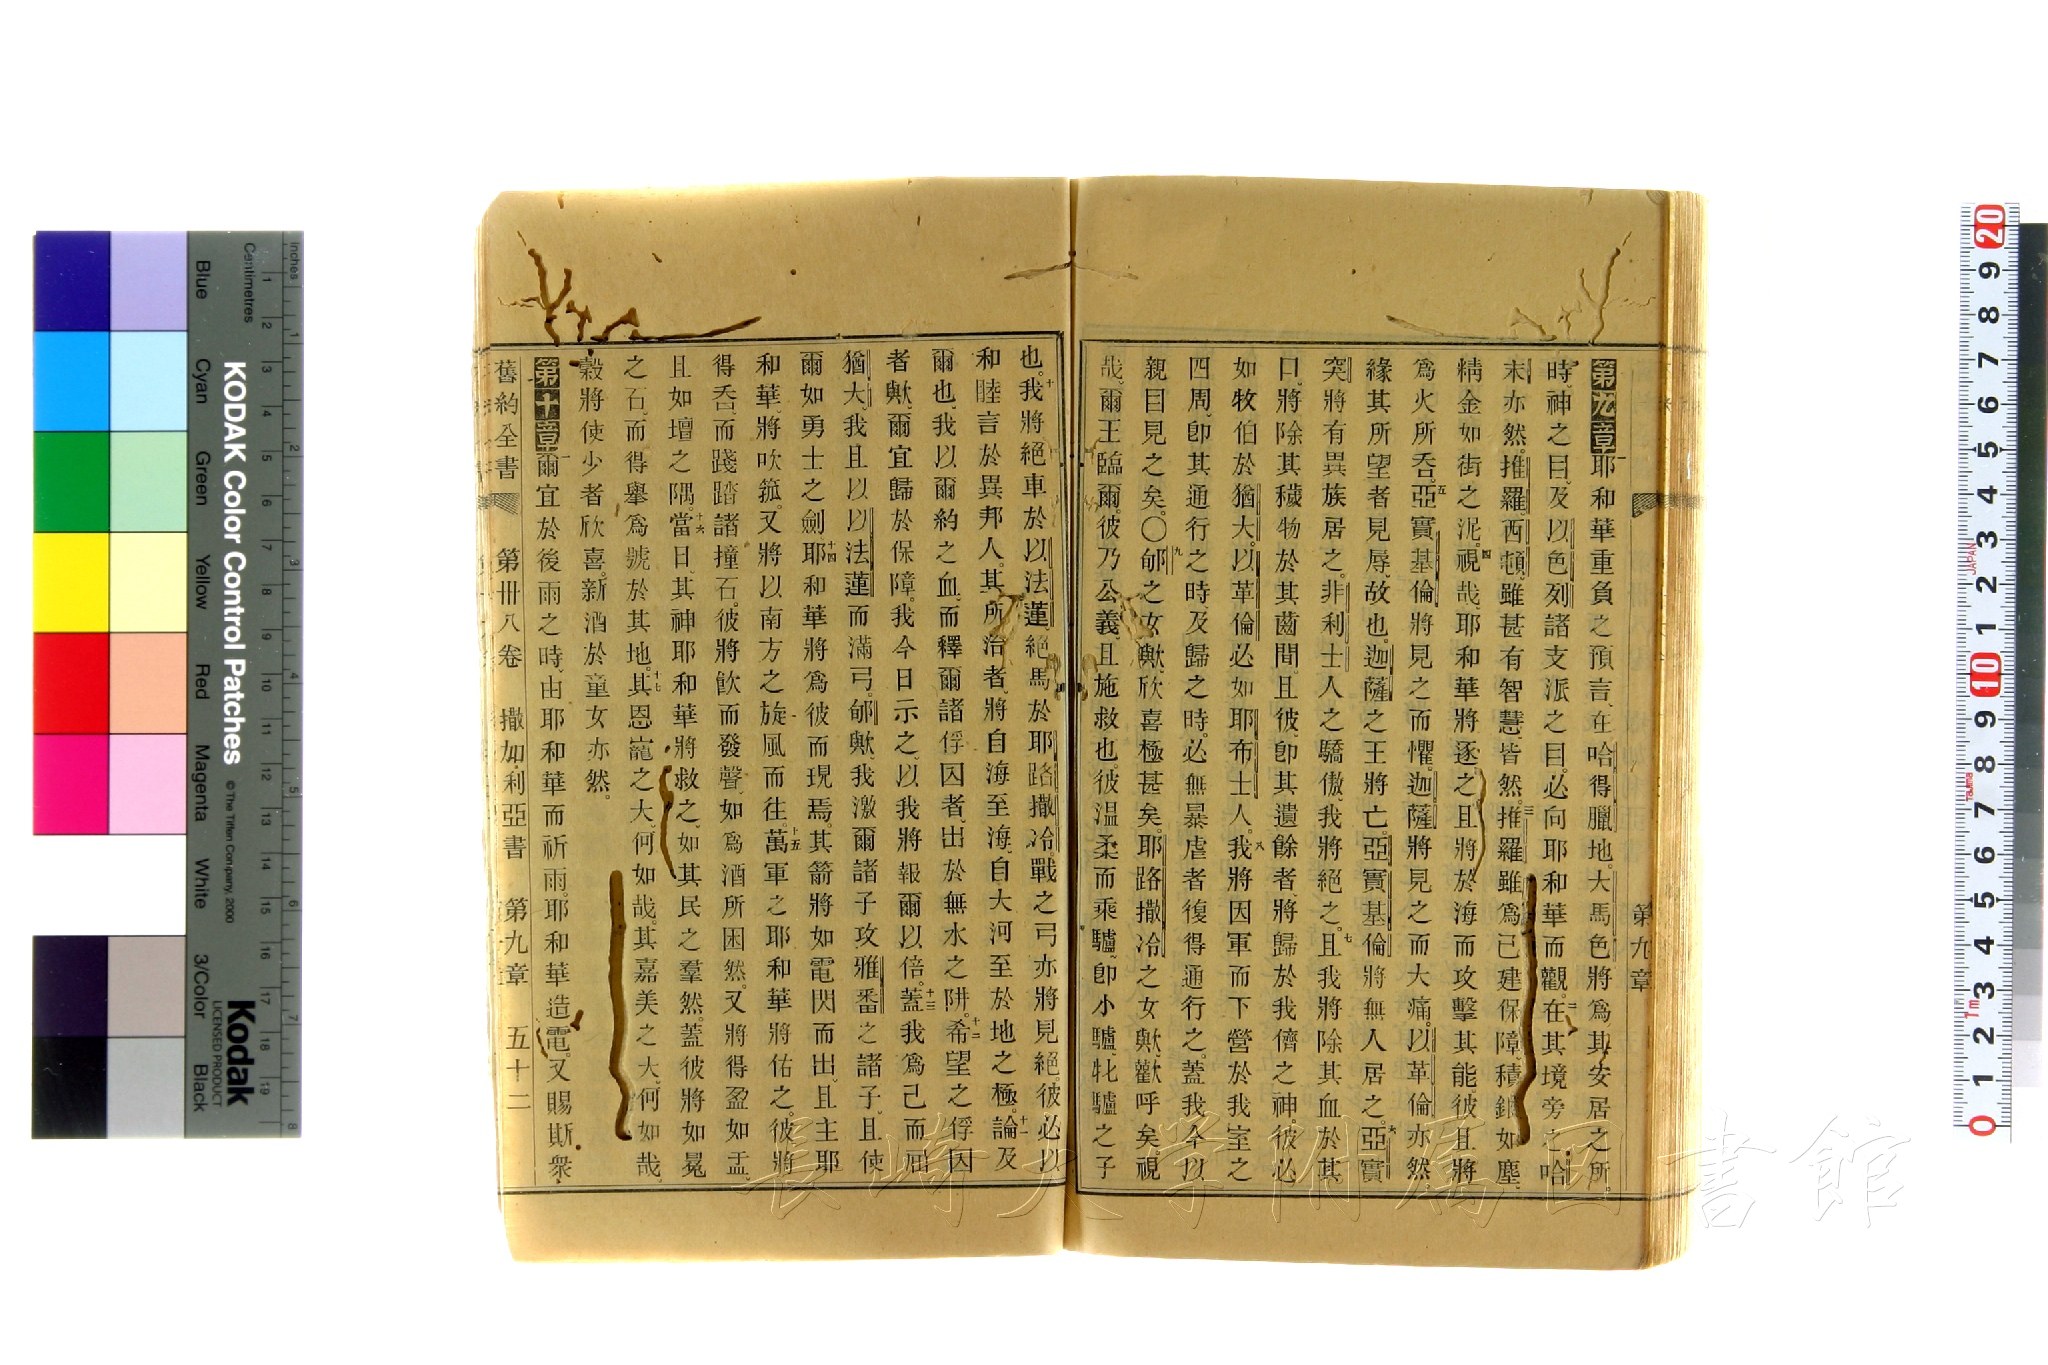 第九章
第九章一耶和華重負之預言、在哈得臘地。大馬色將爲其安居之所。
時、神之目、及以色列諸支派之目。必向耶和華而觀。二在其境旁之哈
末亦然。推羅、西頓、雖甚有智慧、皆然。三推羅雖爲己建保障、積銀如塵、
精金如街之泥。四視哉、耶和華將逐之、且將於海而攻擊其能。彼且將
爲火所吞。五亞實基倫將見之而懼。迦薩將見之而大痛。以革倫亦然
緣其所望者見辱、故也。迦薩之王將亡。亞實基倫將無人居之。六亞實
突將有異族居之。非利士人之驕傲、我將絕之。七且我將除其血於其
口、將除其穢物於其齒間。且彼、卽其遺餘者、將歸於我儕之神。彼必
如牧伯於猶大。以革倫必如耶布士人。八我將因軍而下營於我室之
四周、卽其通行之時、及歸之時。必無暴虐者復得通行之。蓋我今以
親目見之矣。〇九郇之女歟、欣喜極甚矣。耶路撒冷之女歟、歡呼矣。視
哉、爾王臨爾。彼乃公義、且施救也。彼温柔而乘驢、卽小驢、牝驢之子
也。十我將絕車於以法蓮。絕馬於耶路撒冷。戰之弓亦將見絕。彼必以
和睦言於異邦人。其所治者、將自海至海、自大河至於地之極。十一論及
爾也、我以爾約之血、而釋爾諸俘囚者、出於無水之阱。十二希望之俘囚
者歟、爾宜歸於保障。我今日示之、以我將報爾以倍。十三蓋我爲己而屈
猶大、我且以以法蓮而滿弓。郇歟、我激爾諸子攻雅番之諸子。且使
爾如勇士之劍。十四耶和華將爲彼而現焉。其箭將如電閃而出。且主耶
和華、將吹箛。又將以南方之旋風而往。十五萬軍之耶和華將佑之。彼將
得吞、而踐踏諸撞石。彼將飮而發聲、如爲酒所困然。又將得盈如盂、
且如壇之隅。十六當日、其神耶和華將救之、如其民之羣然。蓋彼將如冕
之石、而得舉爲號於其地。十七其恩寵之大、何如哉。其嘉美之大、何如哉。
穀將使少者欣喜。新酒於童女亦然。
第十章一爾宜於後雨之時、由耶和華而祈雨。耶和華造電。又賜斯衆
舊約全書 第卅八卷 撒加利亞書 第九章 五十二
長崎大学附属図書館
KODAK Color Control Patches
© The Tiffen Company, 2000
Kodak
LICENSED PRODUCT
Inches
Centimetres
Blue
Cyan
Green
Yellow
Red
Magenta
White
3/Color
Black
1 2 3 4 5 6 7 8
1 2 3 4 5 6 7 8 9 10 11 12 13 14 15 16 17 18 19
20 9 8 7 6 5 4 3 2 1 10 9 8 7 6 5 4 3 2 1 0
JAPAN